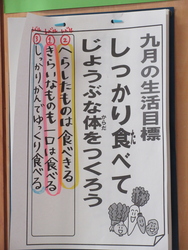 九月の生活目標
しっかり食べて
じょうぶな体をつくろう
からだ
② へらしたものは食べきる
① きらいなものも一口は食べる
③ しっかりかんでゆっくり食べる